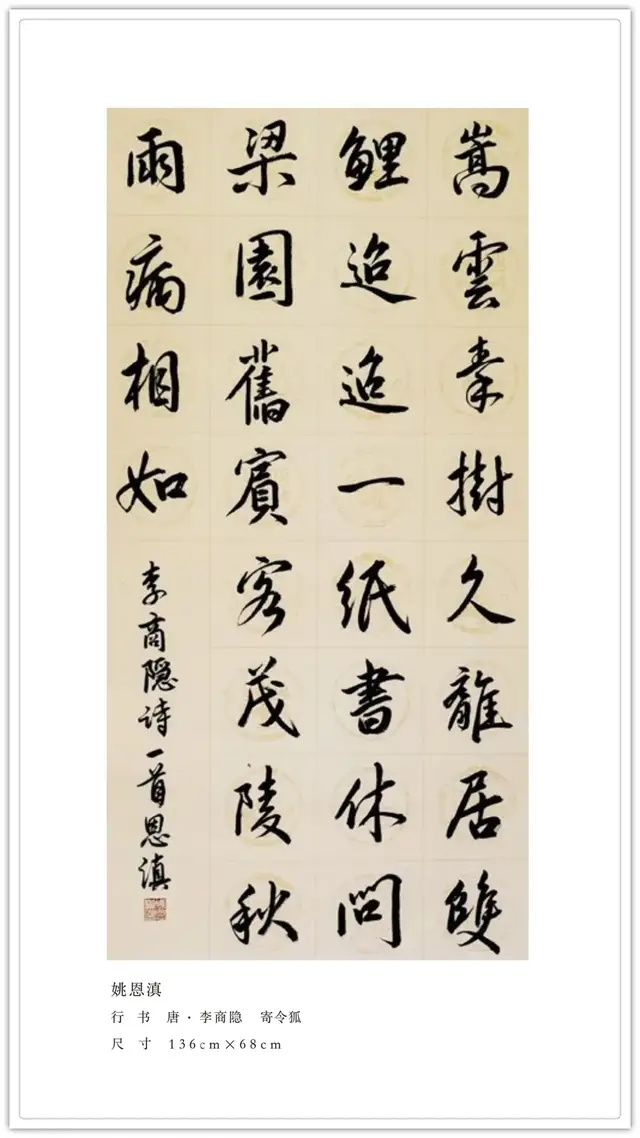 嵩雲秦樹久離居雙
鯉迢迢一紙書休問
梁園舊賓客茂陵秋
雨病相如
李商隱詩一首恩滇
姚恩滇
行 书 唐·李商隐 寄令狐
尺 寸 136cm×68cm